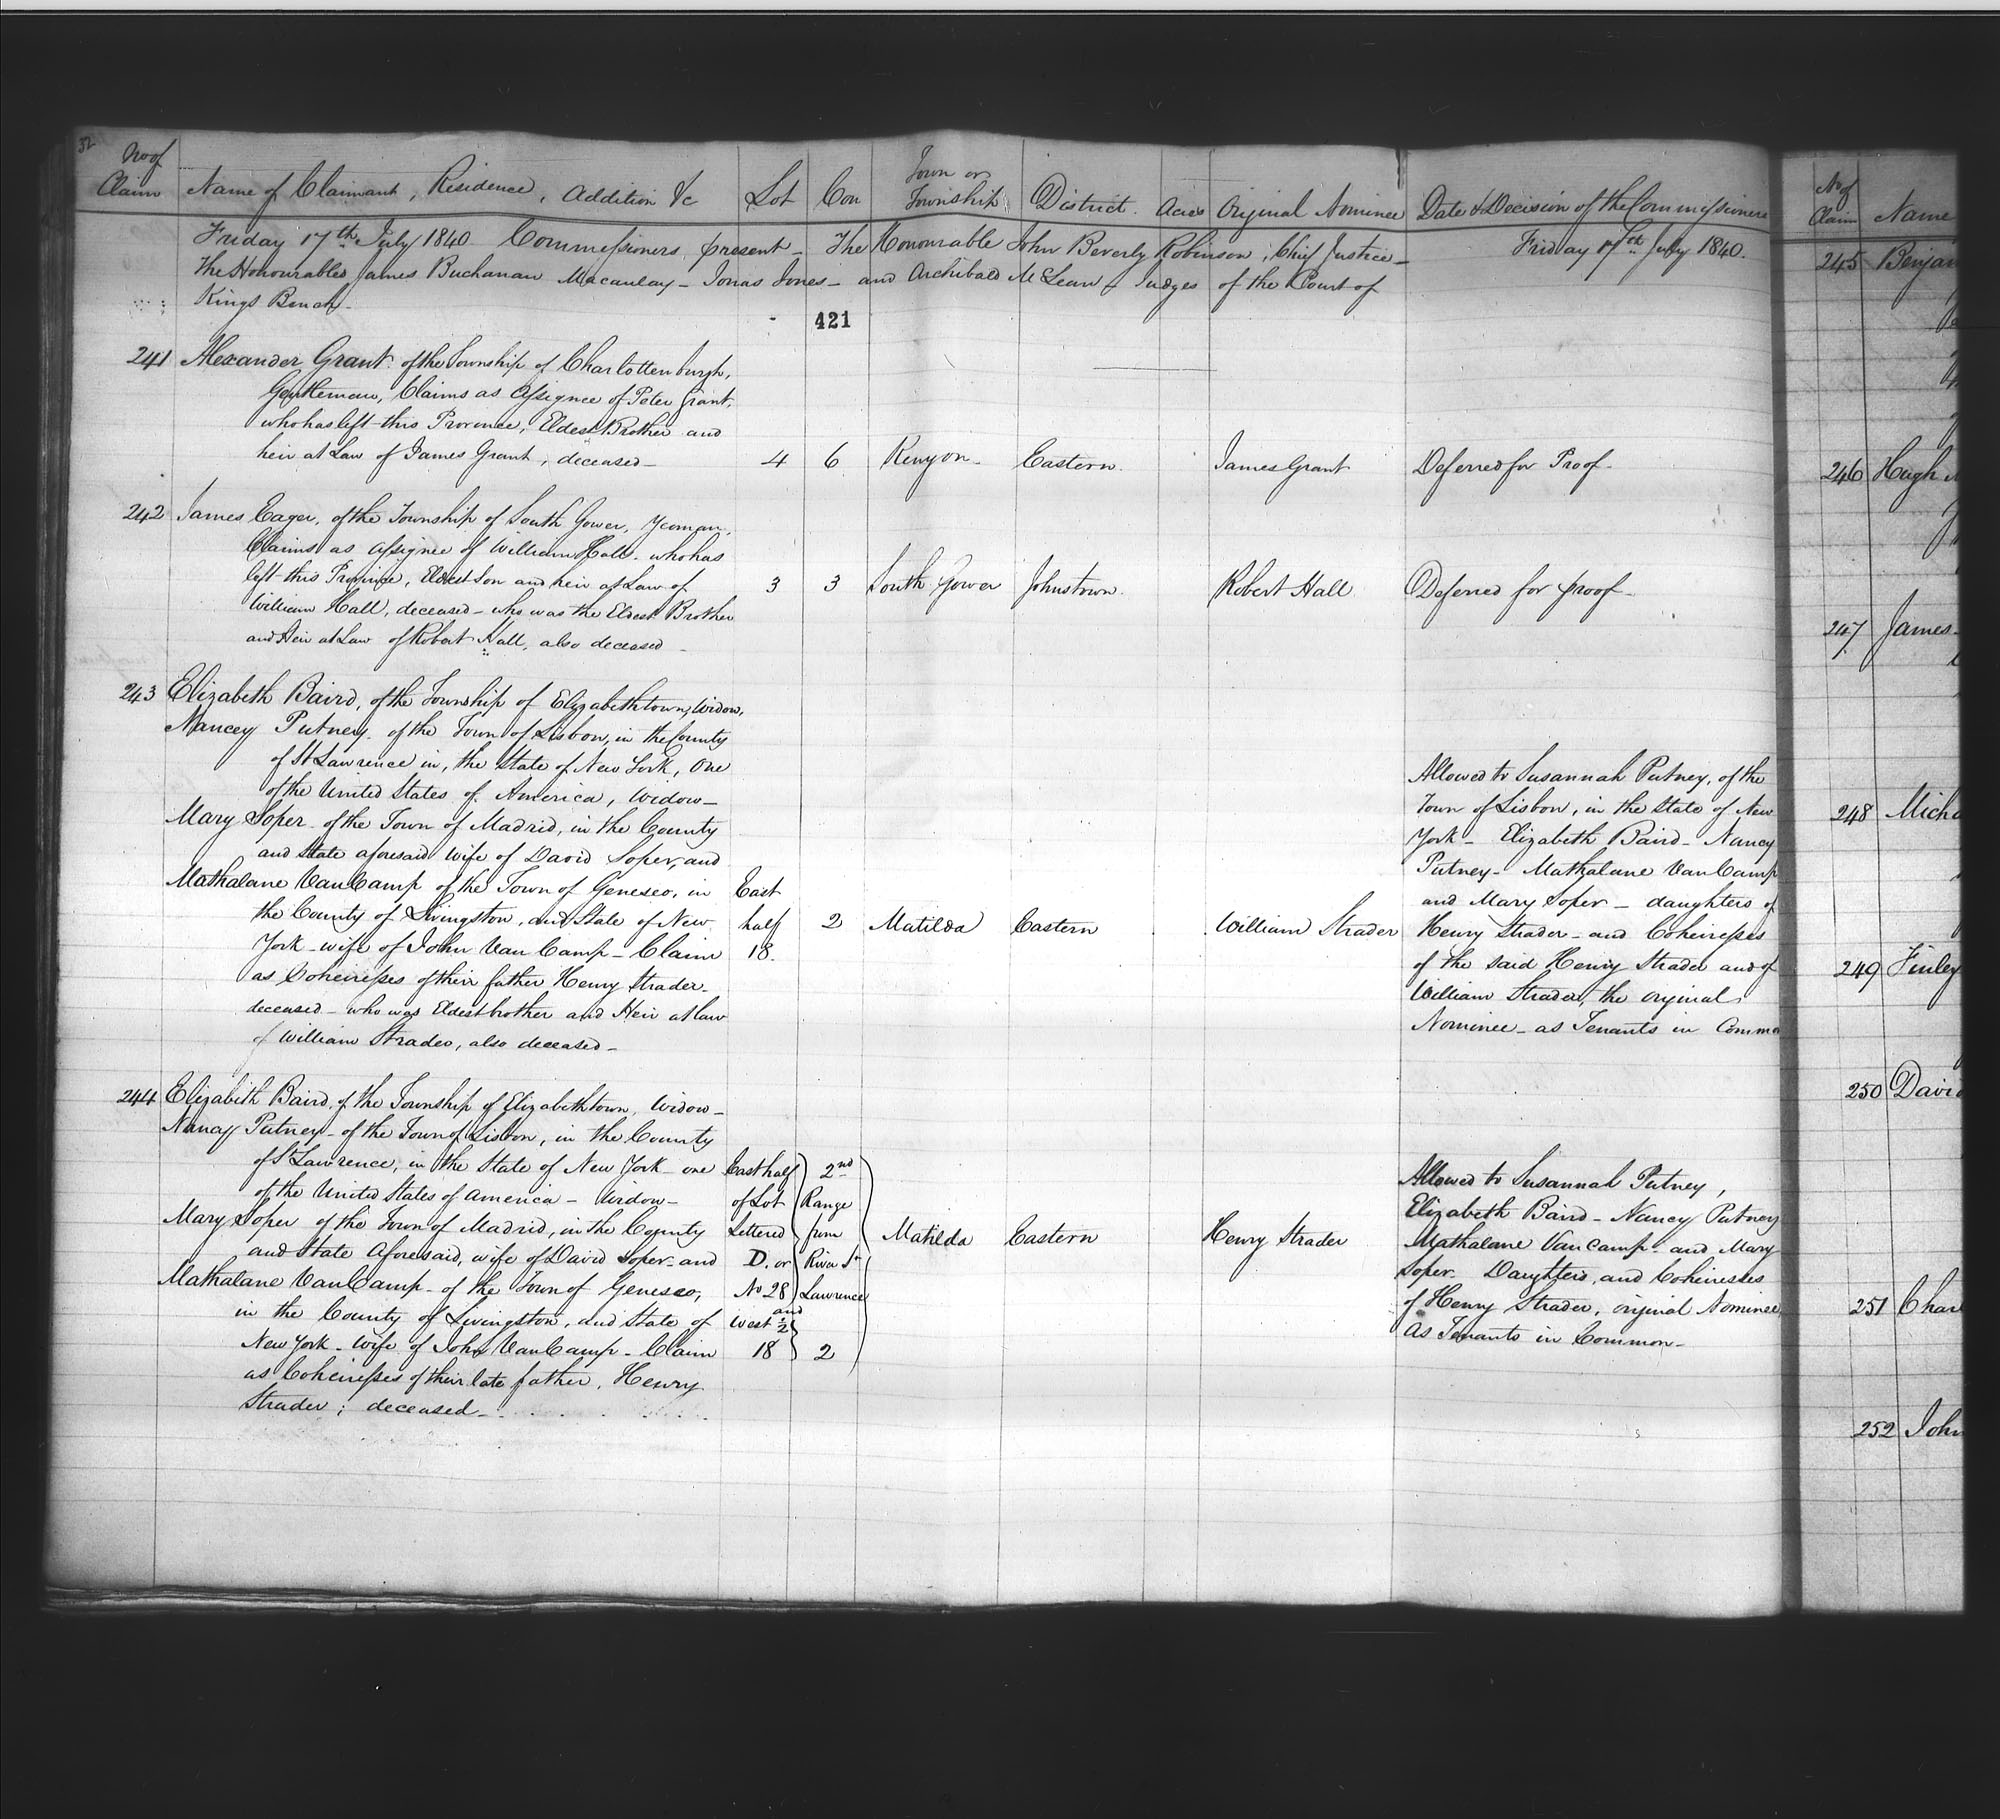 32
No of Claim | Name of Claimant, Residence, Addition &c | Lot | Con | Town or Township | District | Acres | Original Nominee | Date & Decision of the Commissioners
Friday 17th July 1840 Commissioners present - The Honourable John Beverly Robinson, Chief Justice - | Friday 17th July 1840.
The Honourables James Buchanan Macaulay - Jonas Jones - and Archibald McLean - Judges of the Court of
Kings Bench -
421
241 Alexander Grant of the Township of Charlottenburgh,
Gentleman, Claims as Assignee of Peter Grant,
who has left this Province, Eldest Brother and
heir at Law of James Grant, deceased - | 4 | 6 | Kenyon - | Eastern | James Grant | Deferred for Proof -
242 James Eager, of the Township of South Gower, Yeoman,
Claims as Assignee of William Hall who has
left this Province, Eldest Son and heir at Law of | 3 | 3 | South Gower | Johnstown | Robert Hall | Deferred for proof -
William Hall, deceased - who was the Eldest Brother
and Heir at Law of Robert Hall, also deceased -
243 Elizabeth Baird, of the Township of Elizabethtown, Widow,
Nancey Putney of the Town of Lisbon, in the County
of St Lawrence in, the State of New York, One
of the United States of America, Widow -
Mary Soper of the Town of Madrid, in the County
and State aforesaid wife of David Soper, and
Mathalane VanCamp of the Town of Geneseo, in
the County of Livingston, and State of New
York - wife of John Van Camp - Claim
as Coheiresses of their father Henry Strader -
deceased - who was Eldest brother and Heir at law
of William Strader, also deceased -
East
half
18.
2 | Matilda | Eastern | William Strader
Allowed to Susannah Putney, of the
Town of Lisbon, in the State of New
York - Elizabeth Baird - Nancy
Putney - Mathalane VanCamp
and Mary Soper - daughters of
Henry Strader - and Coheiresses
of the said Henry Strader and of
William Strader, the original
Nominee - as Tenants in Commo
244 Elizabeth Baird, of the Township of Elizabethtown, Widow -
Nancy Putney - of the Town of Lisbon, in the County
of St Lawrence, in the State of New York - one
of the United States of America - Widow -
Mary Soper of the Town of Madrid, in the County
and State Aforesaid, wife of David Soper - and
Mathalane VanCamp - of the Town of Geneseo,
in the County of Livingston, and State of
New York - Wife of John VanCamp - Claim
as Coheiresses of their late father, Henry
Strader; deceased -
East half
of Lot
Lettered
D. or
No 28
and
West 1/2
18
2nd
Range
from
River St
Lawrence
2
Matilda | Eastern | Henry Strader
Allowed to Susannah Putney,
Elizabeth Baird - Nancy Putney
Mathalane VanCamp - and Mary
Soper - Daughters, and Coheiresses
of Henry Strader, original Nominee,
As Tenants in Common -
No of Claim | Name
245 Benjam
246 Hugh M
247 James
248 Micha
249 Finley
250 David
251 Char
252 John